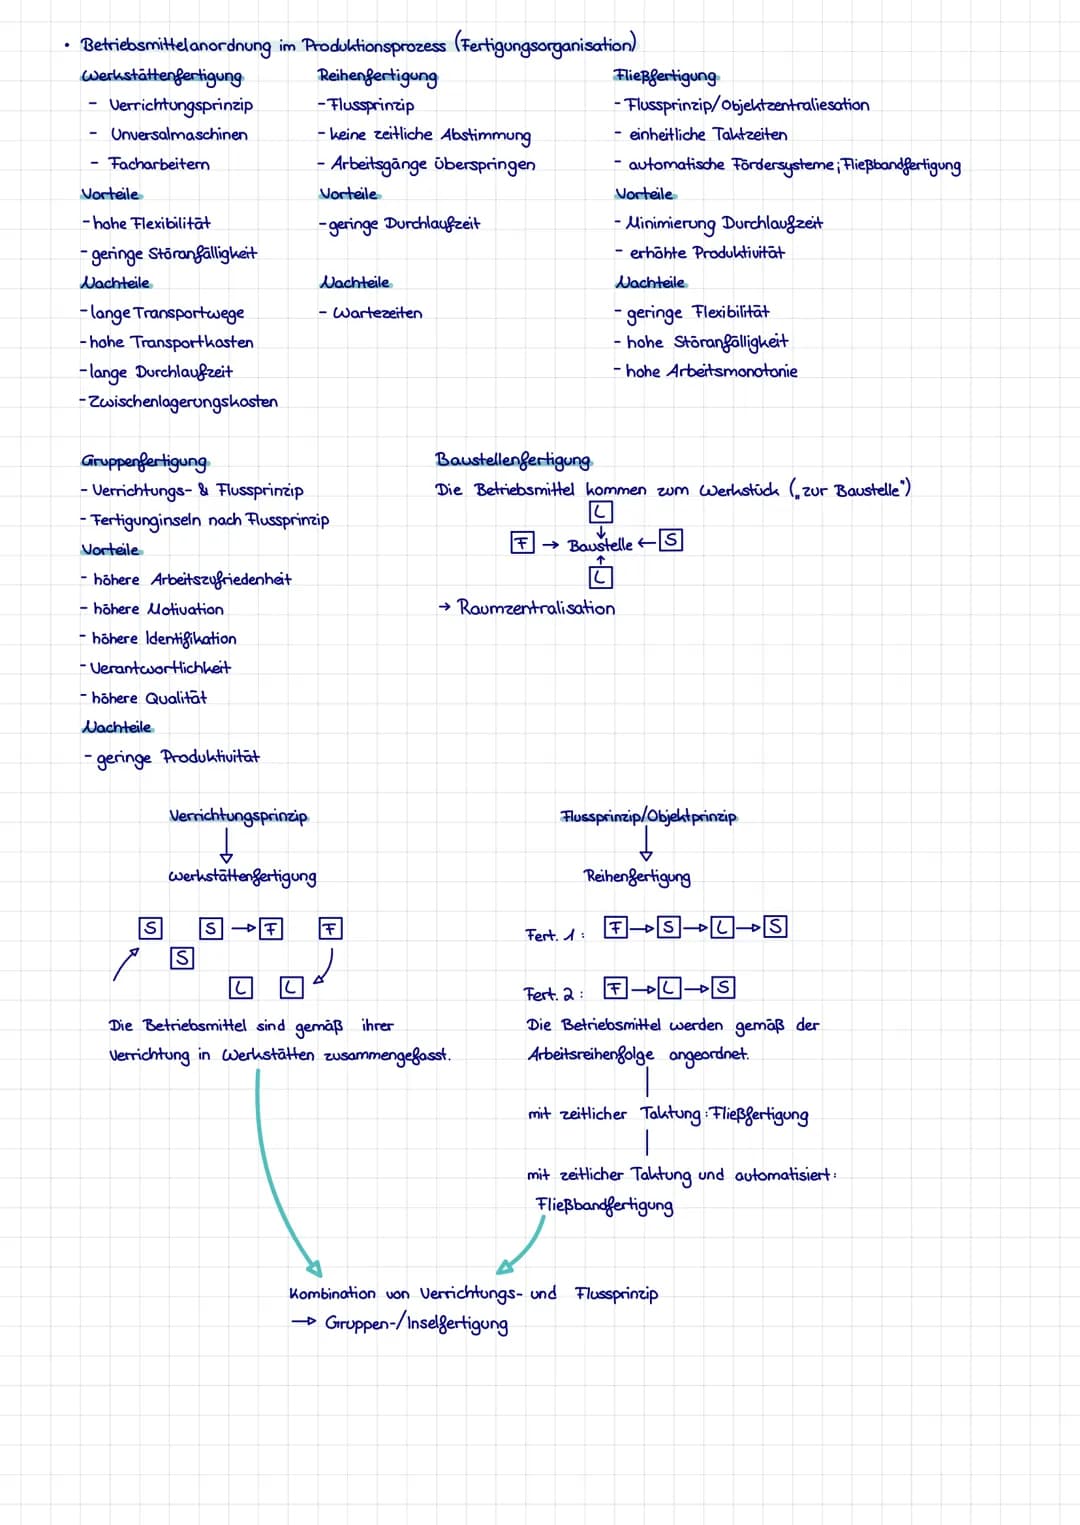 • Betriebsmittelanordnung im Produktionsprozess (Fertigungsorganisation)
Werkstättenfertigung
- Verrichtungsprinzip
- Unversalmaschinen
- Facharbeitern
Vorteile
- hohe Flexibilität
- geringe Störanfälligkeit
Nachteile
- lange Transportwege
- hohe Transportkosten
- lange Durchlaufzeit
- Zwischenlagerungskosten
Reihenfertigung
- Flussprinzip
- keine zeitliche Abstimmung
- Arbeitsgänge überspringen
Vorteile
- geringe Durchlaufzeit
Nachteile
- Wartezeiten
Fließfertigung
- Flussprinzip/Objektzentraliesation
- einheitliche Taktzeiten
- automatische Fördersysteme; Fließbandfertigung
Vorteile
- Minimierung Durchlaufzeit
- erhöhte Produktivität
Nachteile
- geringe Flexibilität
- hohe Störanfälligkeit
- hohe Arbeitsmonotonie
Gruppenfertigung
- Verrichtungs- & Flussprinzip
- Fertigunginseln nach Flussprinzip
Vorteile
- höhere Arbeitszufriedenheit
- höhere Motivation
- höhere Identifikation
- Verantwortlichkeit
- höhere Qualität
Nachteile
- geringe Produktivität
Baustellenfertigung
Die Betriebsmittel kommen zum Werkstück („zur Baustelle")
L
↓
F → Baustelle ← S
↑
L
→ Raumzentralisation
Verrichtungsprinzip
↓
Werkstättenfertigung
S S → F F
S
L L
Die Betriebsmittel sind gemäß ihrer
Verrichtung in Werkstätten zusammengefasst.
Flussprinzip/Objektprinzip
↓
Reihenfertigung
Fert. 1: F → S → L → S
Fert. 2: F → L → S
Die Betriebsmittel werden gemäß der
Arbeitsreihenfolge angeordnet.
mit zeitlicher Taktung: Fließfertigung
mit zeitlicher Taktung und automatisiert:
Fließbandfertigung
Kombination von Verrichtungs- und Flussprinzip
→ Gruppen-/Inselfertigung